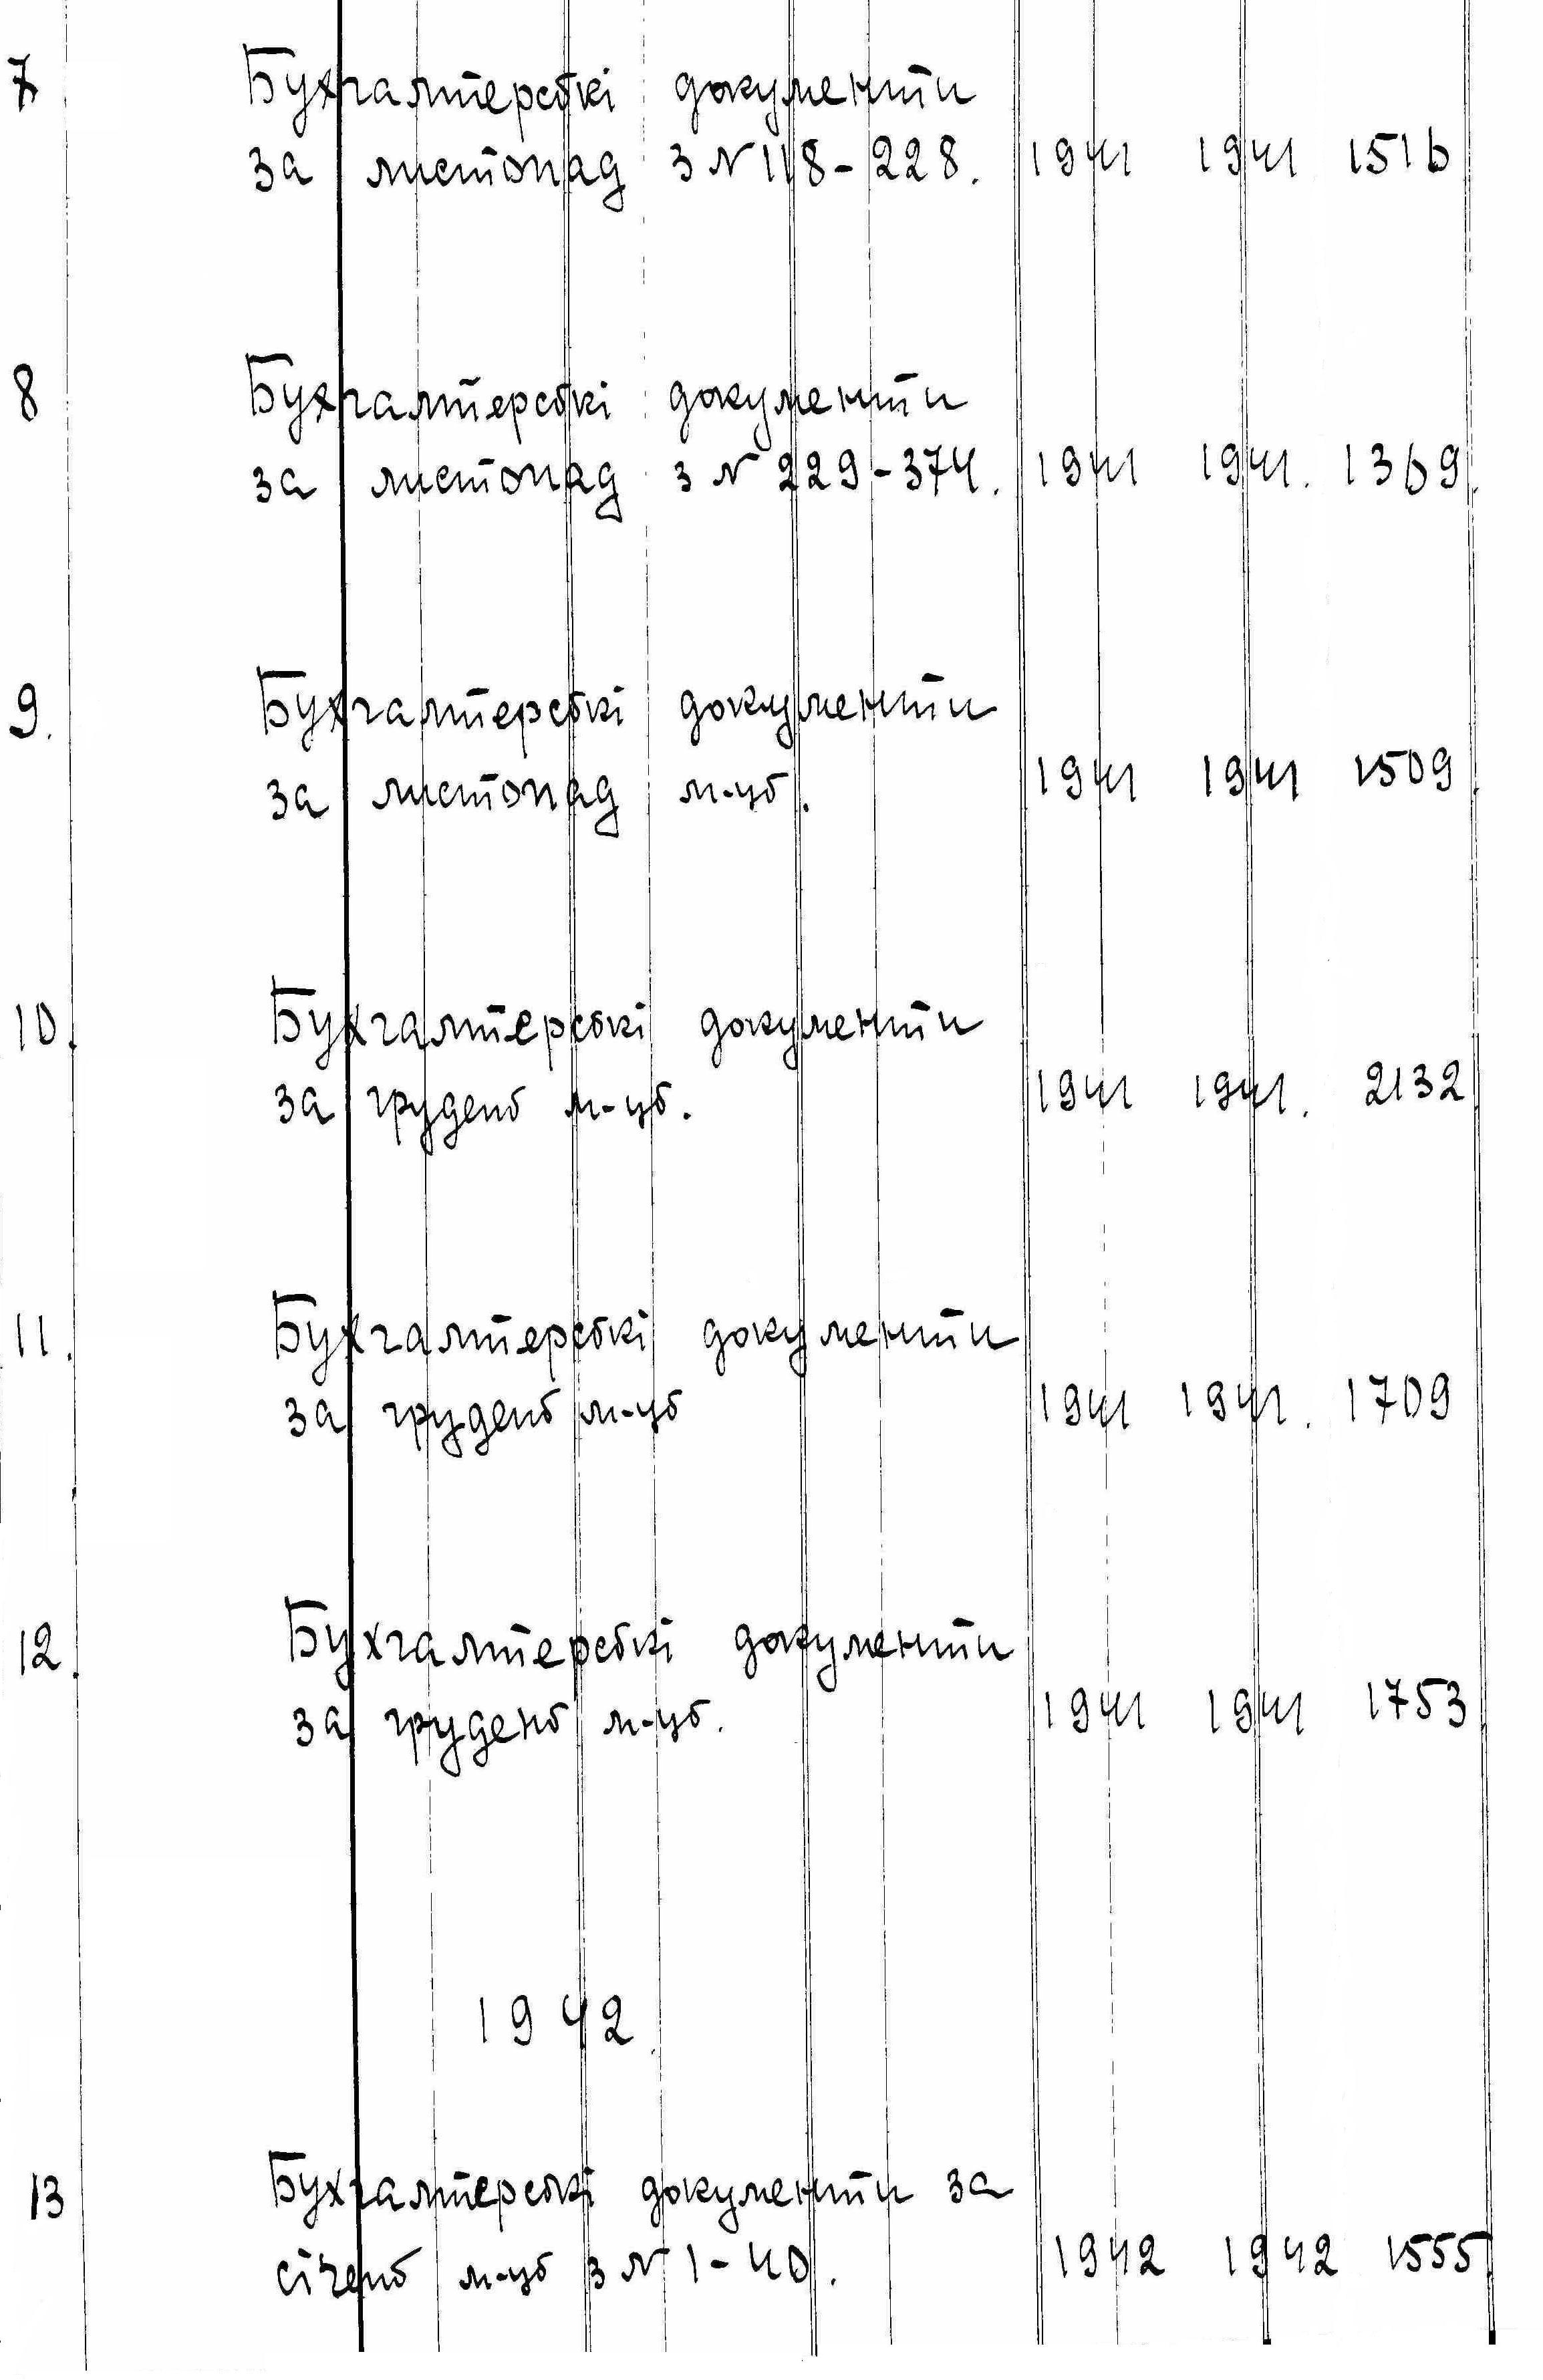 7 Бухгалтерські документи
за листопад з N 118-228. 1941 1941 1516
8 Бухгалтерські документи
за листопад з N 229-374. 1941 1941. 1369.
9. Бухгалтерські документи
за листопад м-ць. 1941 1941 1509
10. Бухгалтерські документи
за грудень м-ць. 1941 1941. 2132
11. Бухгалтерські документи
за грудень м-ць 1941 1941. 1709
12. Бухгалтерські документи
за грудень м-ць. 1941 1941 1753
1942.
13 Бухгалтерські документи за
січень м-ць з N 1-40. 1942 1942 1555